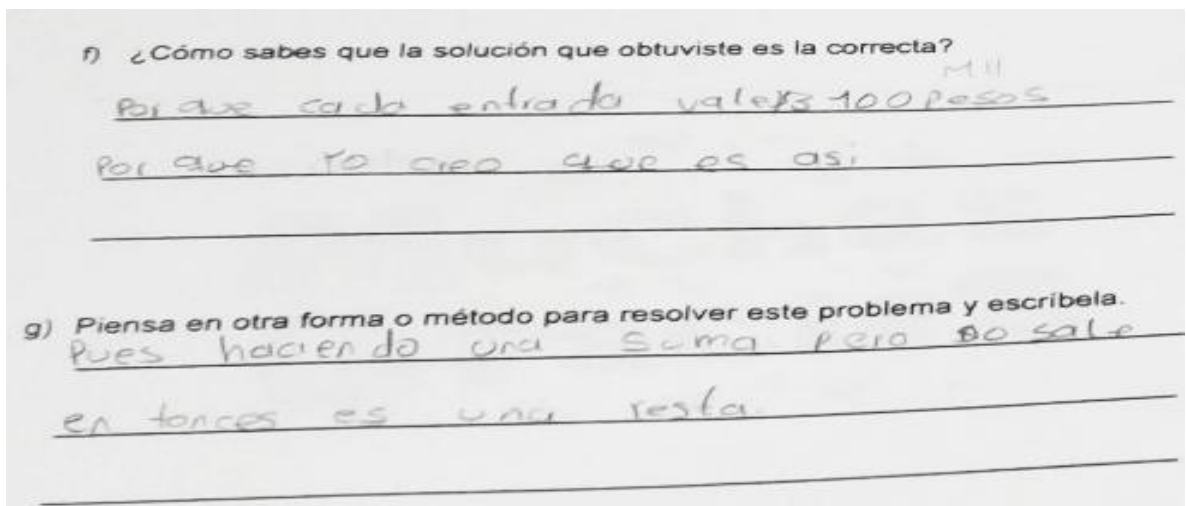 f) ¿Cómo sabes que la solución que obtuviste es la correcta?
Mil
Por que cada entrada vale 100 pesos
Por que Yo creo que es asi
g) Piensa en otra forma o método para resolver este problema y escríbela.
Pues haciendo una Suma pero no sale
en tonces es una resta.